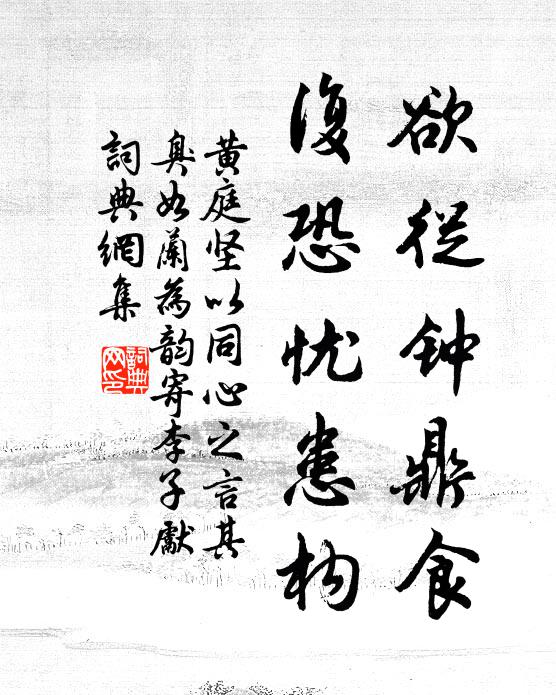 欲从钟鼎食
復恐忧患构
黄庭坚以同心之言其
臭如蘭為韵寄李子獻
詞典網集
詞典網印